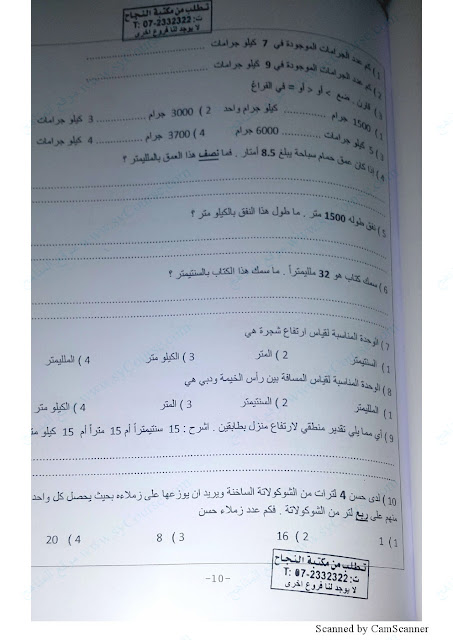 تطلب من مكتبة النجاح
ت: 2332322-07 :T
لا يوجد لنا فروع اخرى
1 ) كم عدد الجرامات الموجودة في 7 كيلو جرامات ..............
2 ) كم عدد الجرامات الموجودة في 9 كيلو جرامات ..............
3 ) قارن . ضع > أو < أو = في الفراغ
1 ) 1500 جرام .............. كيلو جرام واحد 2 ) 3000 جرام .............. 3 كيلو جرامات
3 ) 5 كيلو جرامات .............. 6000 جرام 4 ) 3700 جرام .............. 4 كيلو جرامات
4 ) إذا كان عمق حمام سباحة يبلغ 8.5 أمتار . فما نصف هذا العمق بالملليمتر ؟
5 ) نفق طوله 1500 متر . ما طول هذا النفق بالكيلو متر ؟
6 ) سمك كتاب هو 32 ملليمتراً . ما سمك هذا الكتاب بالسنتيمتر ؟
7 ) الوحدة المناسبة لقياس ارتفاع شجرة هي
1 ) السنتيمتر 2 ) المتر 3 ) الكيلو متر 4 ) الملليمتر
8 ) الوحدة المناسبة لقياس المسافة بين رأس الخيمة ودبي هي
1 ) الملليمتر 2 ) السنتيمتر 3 ) المتر 4 ) الكيلو متر
9 ) أي مما يلي تقدير منطقي لارتفاع منزل بطابقين . اشرح : 15 سنتيمتراً أم 15 متراً أم 15 كيلو
10 ) لدى حسن 4 لترات من الشوكولاتة الساخنة ويريد ان يوزعها على زملاءه بحيث يحصل كل واحد
منهم على ربع لتر من الشوكولاتة . فكم عدد زملاء حسن
1 ) 1 2 ) 16 3 ) 8 4 ) 20
تطلب من مكتبة النجاح
ت: 2332322-07 :T
لا يوجد لنا فروع اخرى
-10-
Scanned by CamScanner